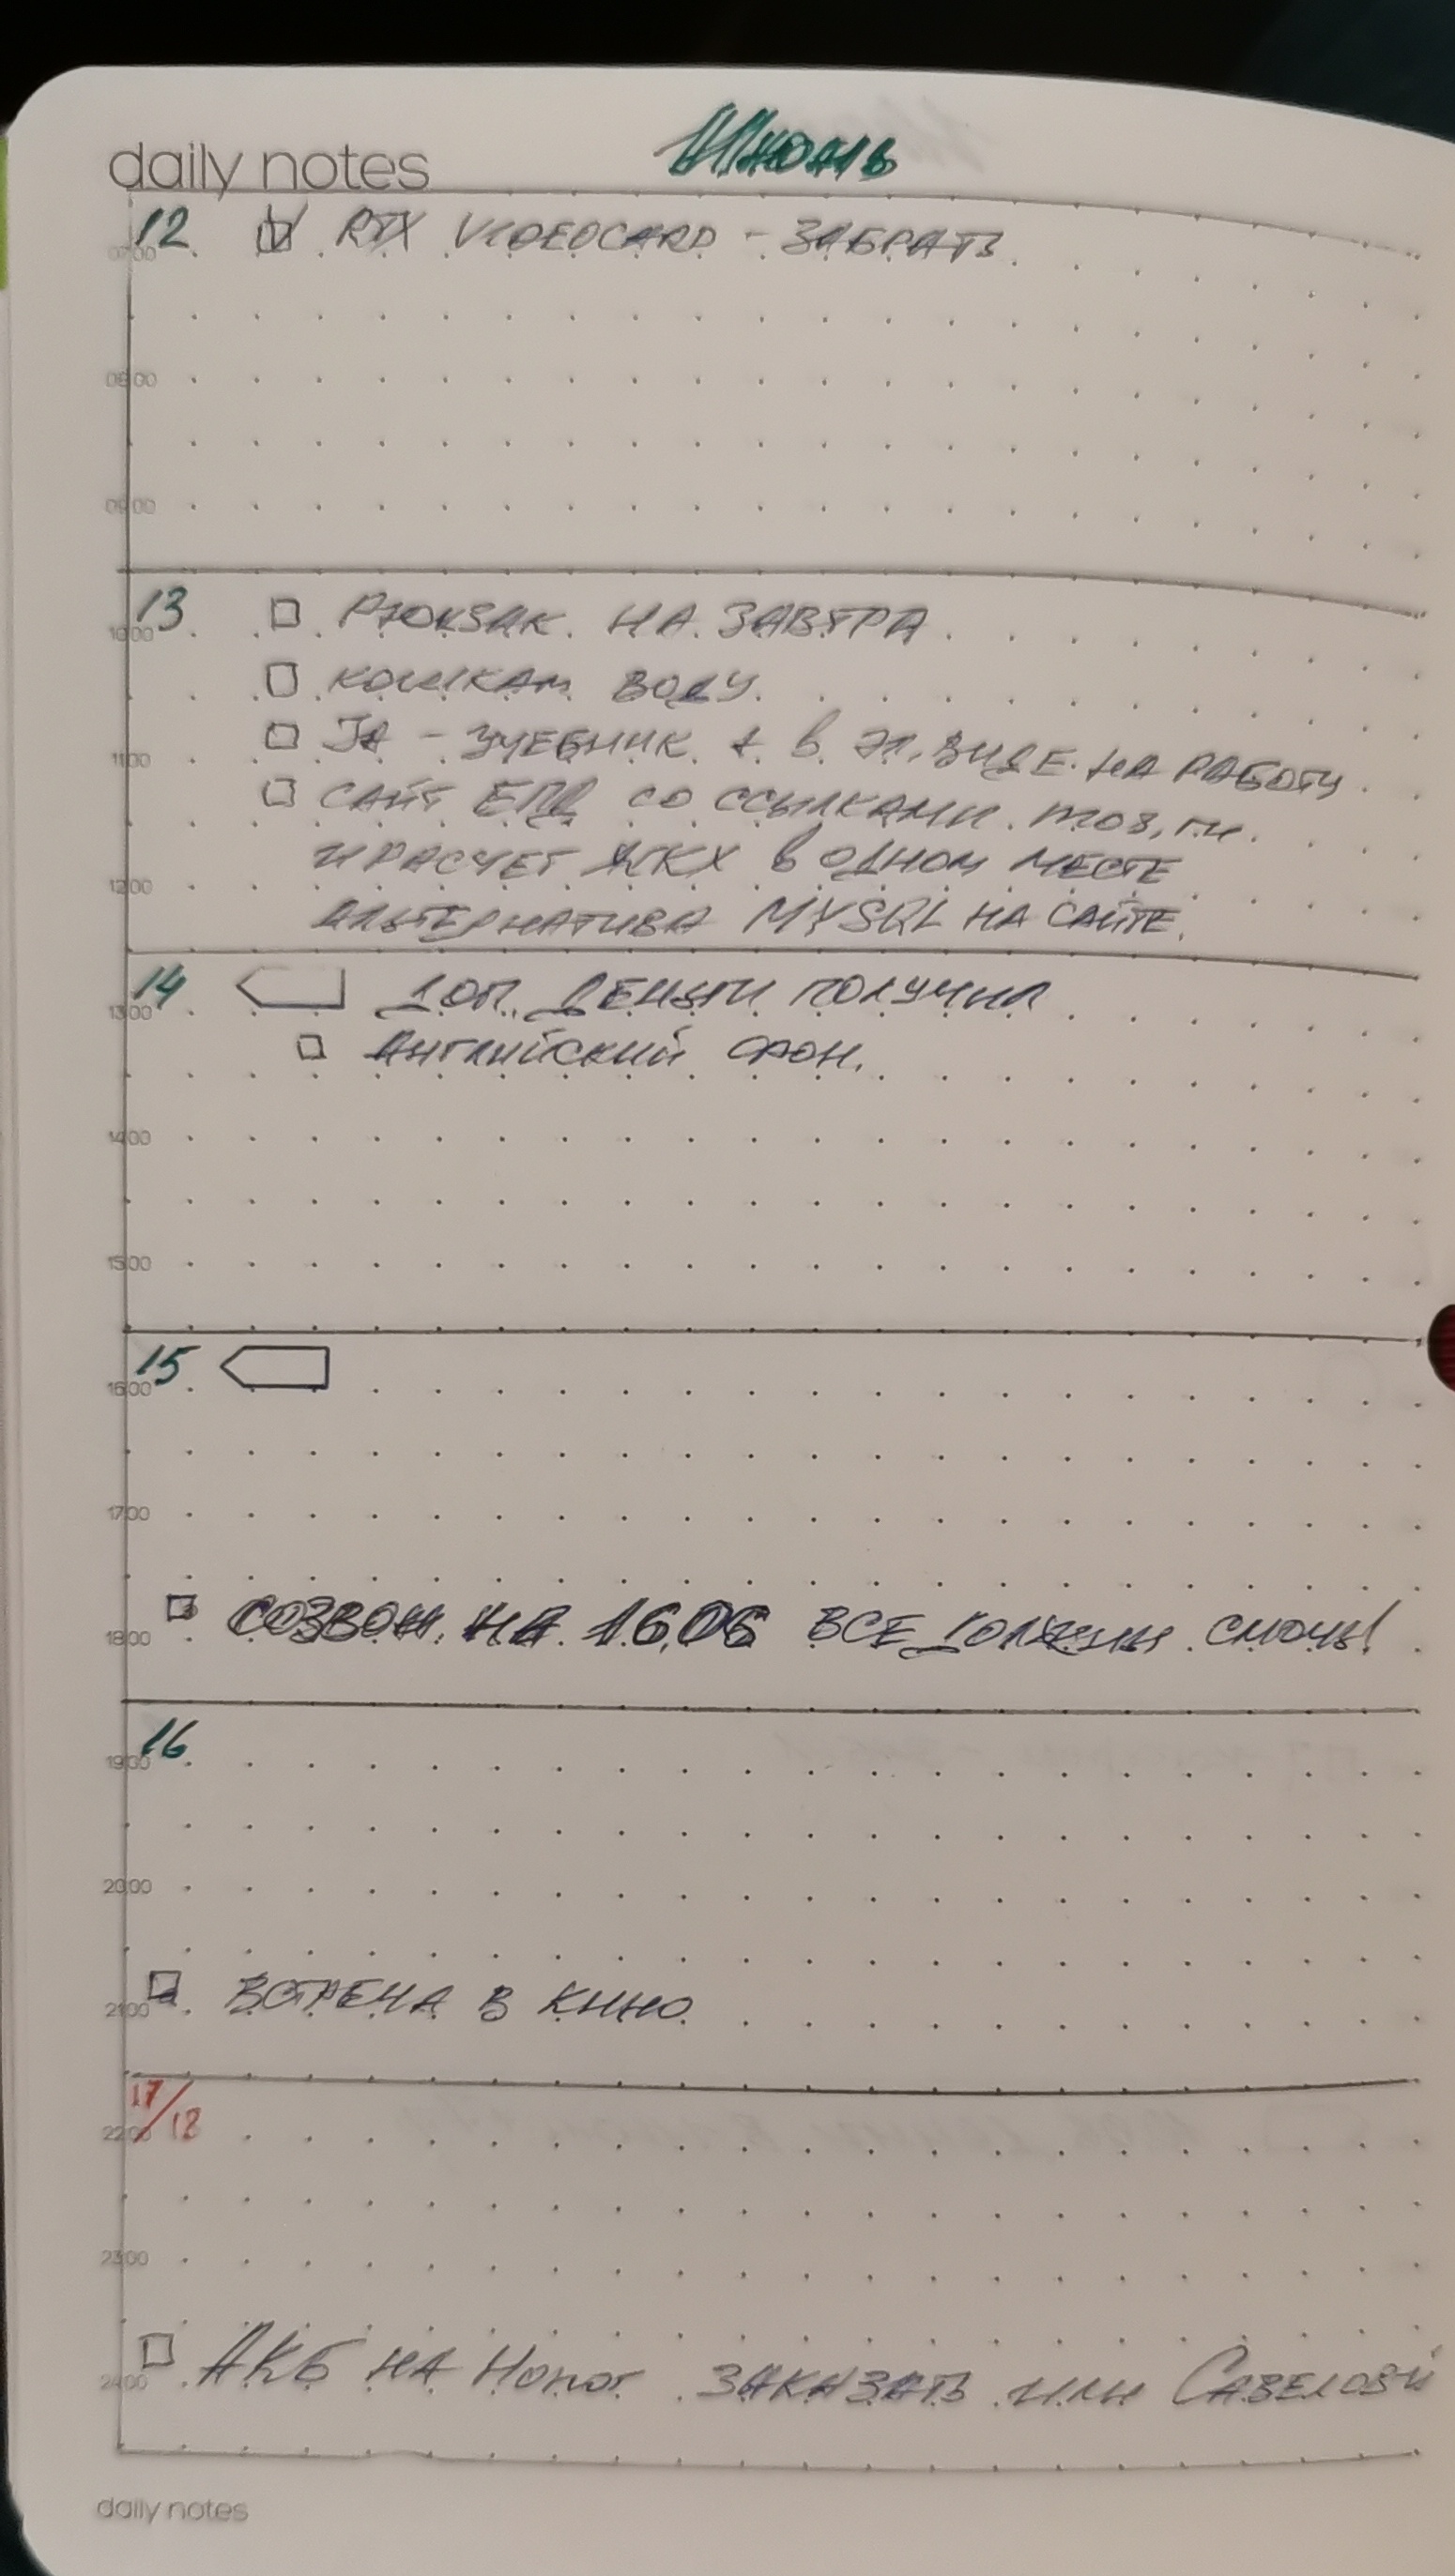 daily notes Июнь
12 RTX VIDEOCARD - ЗАБРАТЬ
07:00
08:00
09:00
13 РЮКЗАК НА ЗАВТРА
10:00
КОШКАМ ВОДУ
11:00 - УЧЕБНИК + В ЭЛ. ВИДЕ НА РАБОТУ
САЙТ ЕПД СО ССЫЛКАМИ
И РАСЧЕТ ЖКХ В ОДНОМ МЕСТЕ
12:00
АЛЬТЕРНАТИВА MYSQL НА САЙТЕ.
14 ДОП. ДЕНЬГИ ПОЛУЧИЛ
13:00
АНГЛИЙСКИЙ ФОН.
14:00
15:00
15
16:00
17:00
СОЗВОН НА 16.06 ВСЕ ДОЛЖНЫ СМОЧЬ!
18:00
16
19:00
20:00
ВСТРЕЧА В КИНО
21:00
17/18
22:00
23:00
АКБ НА Honor ЗАКАЗАТЬ ИЛИ САВЕЛОВЙ
24:00
daily notes